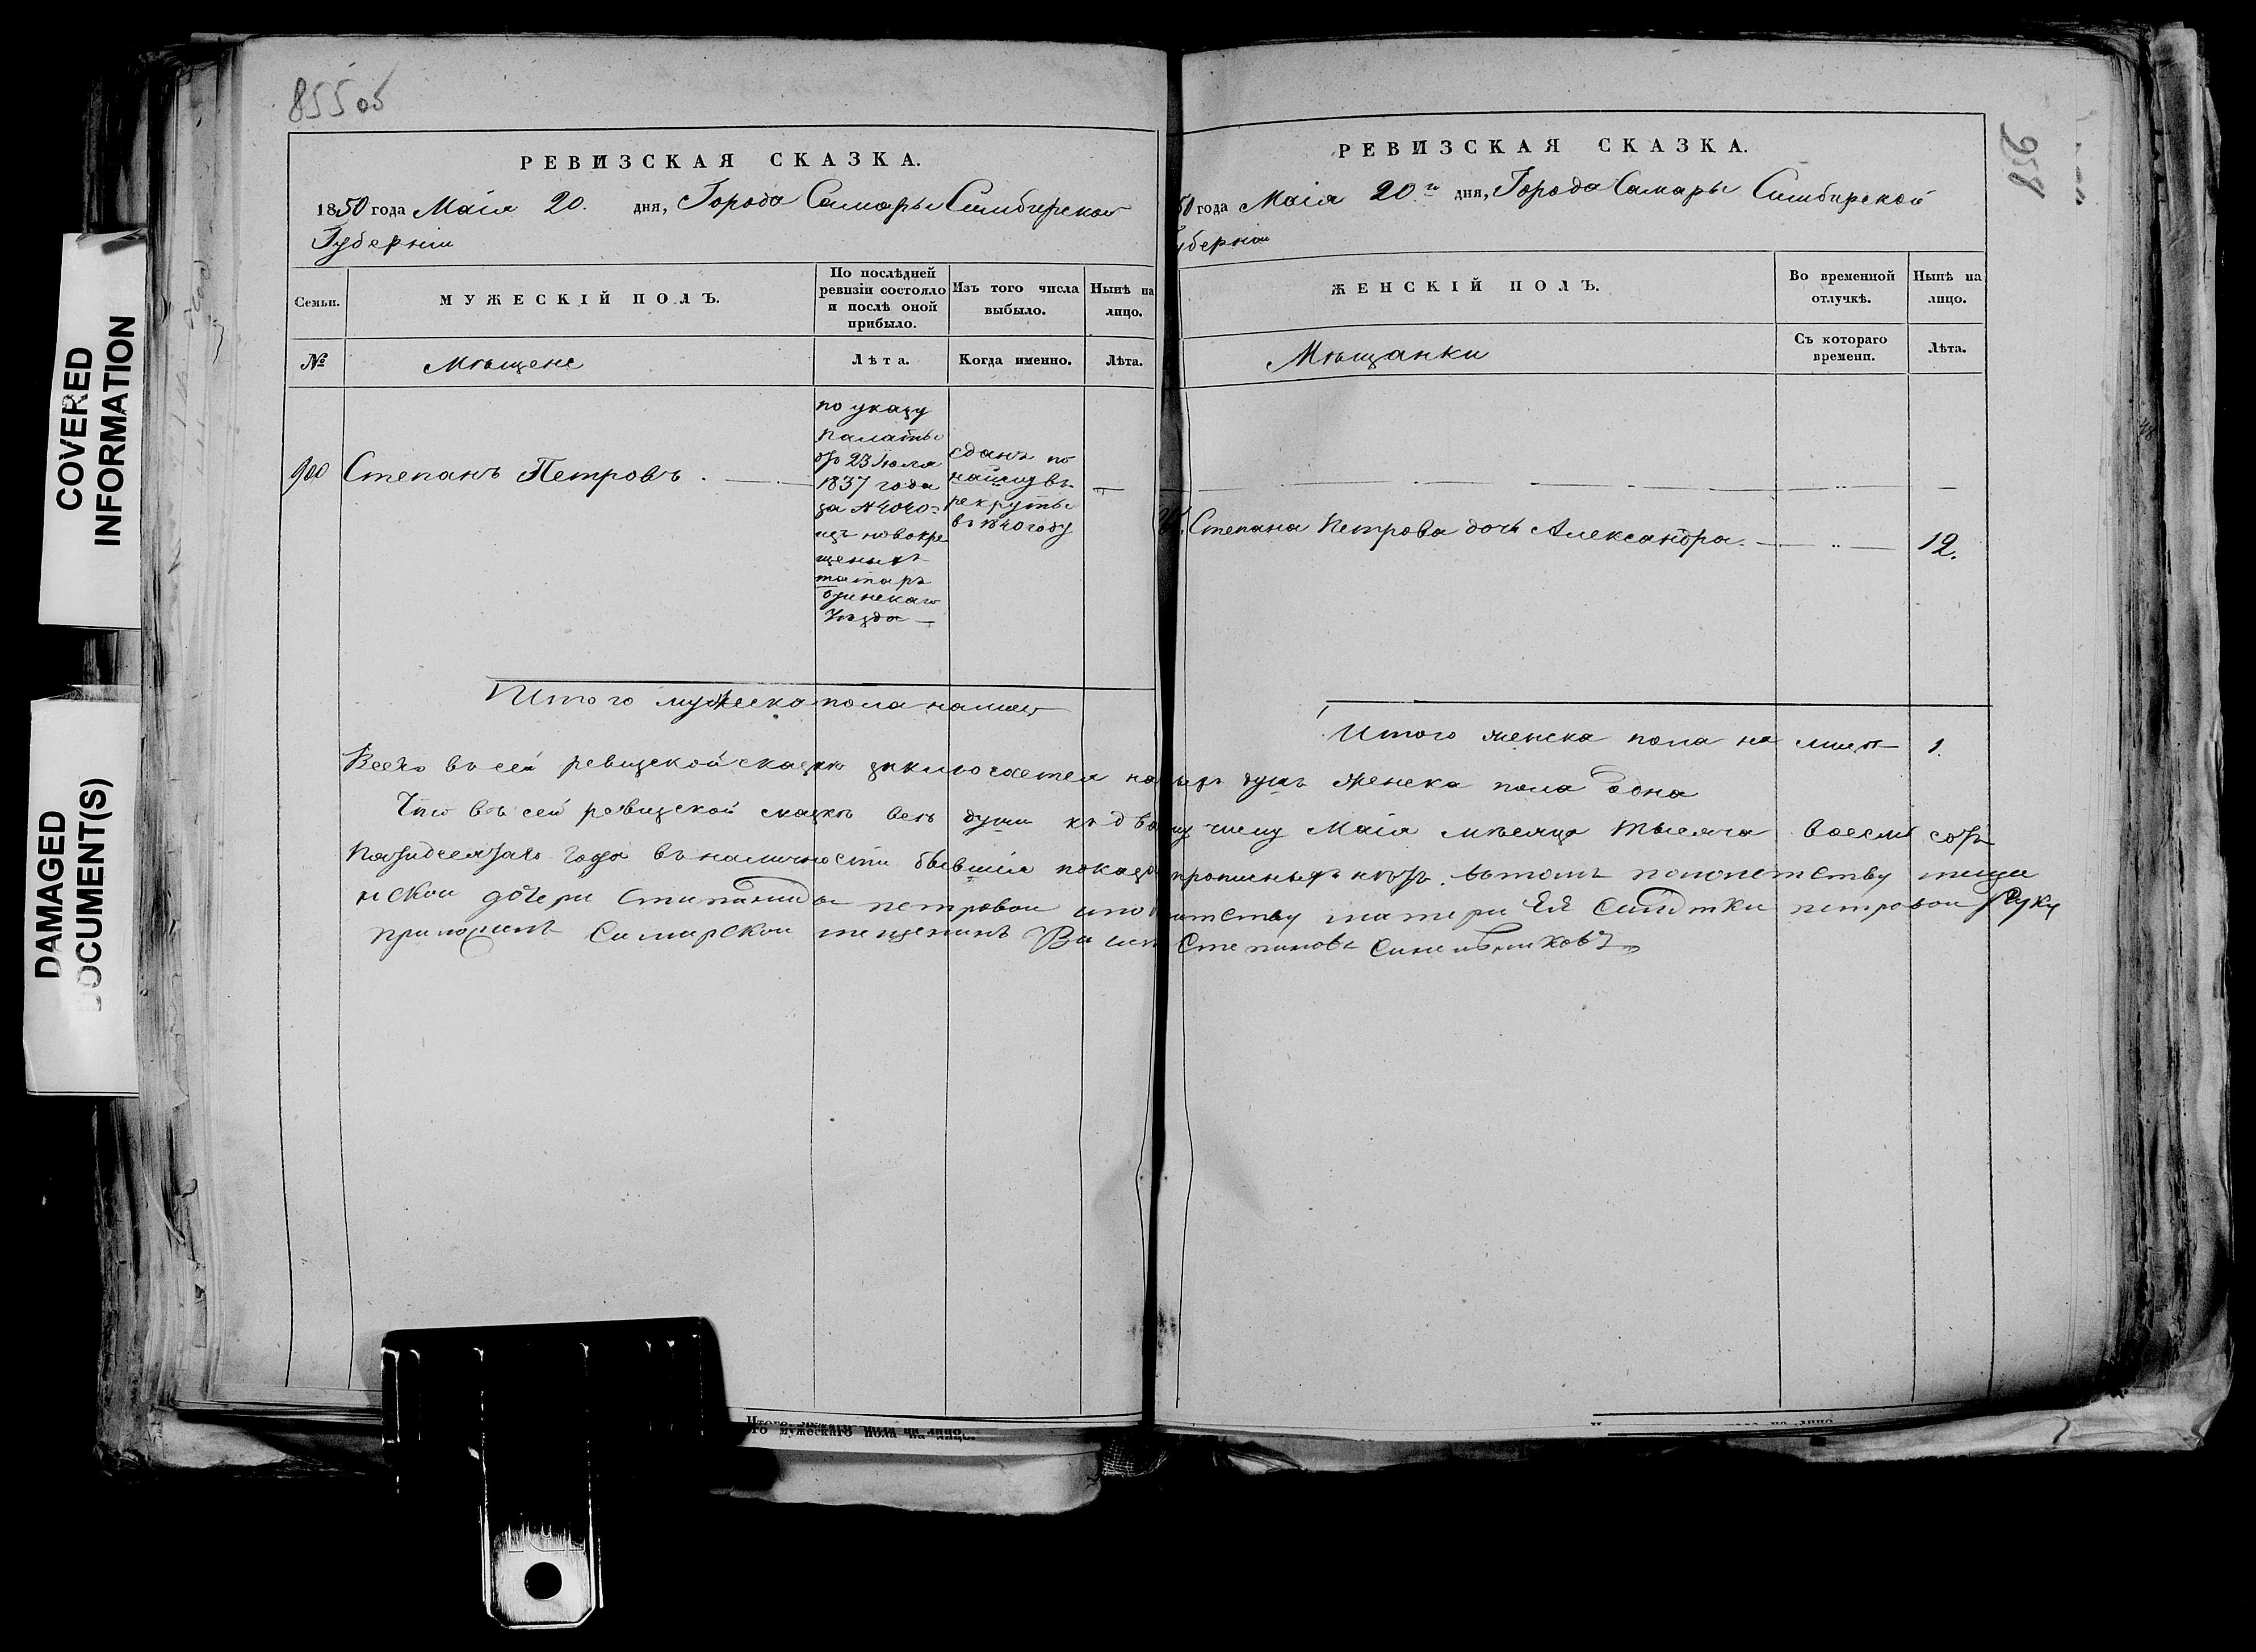 855 об
РЕВИЗСКАЯ СКАЗКА.
1850 года Маія 20. дня, Города Самары Симбирской
Губерніи
Семьи.
МУЖЕСКІЙ ПОЛЪ.
По послѣдней
ревизіи состояло
и послѣ оной
прибыло.
Изъ того числа
выбыло.
Нынѣ на
лицо.
№
Мѣщене
Лѣта.
Когда именно.
Лѣта.
900
Степанъ Петровъ.
по указу
Палаты
отъ 23 Іюля
1837 года
за № 4040
изъ новокре
щеныхъ
татаръ
Уѣзда
сданъ по
найму въ
рекруты
въ 1840 году
Итого мужеска пола налицо
РЕВИЗСКАЯ СКАЗКА.
50 года Маія 20го дня, Города Самары Симбирской
уберніи
ЖЕНСКІЙ ПОЛЪ.
Во временной
отлучкѣ.
Нынѣ на
лицо.
Мѣщанки
Съ котораго
времени.
Лѣта.
Степана Петрова дочь Александра.
12.
Итого женска пола на лицо 1.
Всего въ сей ревизской сказкѣ заключается душъ женска пола одна
Что въ сей ревизской сказкѣ всѣ души къ Маія мѣсяца тысяча восемь сотъ
Пятидесятаго года въ наличности бывшія прописныхъ нѣтъ. Вътомъ
дочери петровои матери Ея петровои руку
приложилъ Самарскои мещенинъ Степановъ
COVERED
INFORMATION
DAMAGED
DOCUMENT(S)
Итого мужескаго пола на лицо.